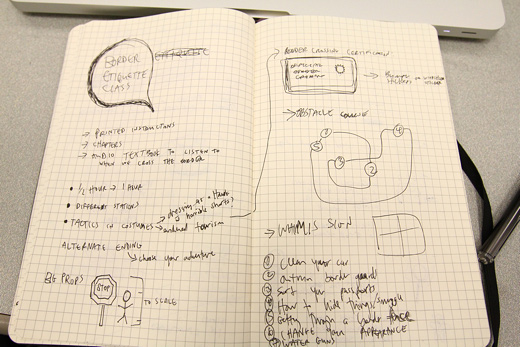 BORDER
ETIQUETTE
CLASS
ETIQUETTE
→ PRINTED INSTRUCTIONS
→ CHAPTERS
→ AUDIO TEXTBOOK TO LISTEN TO
WHEN WE CROSS THE BORDER
• ½ HOUR → 1 HOUR
• DIFFERENT STATIONS
• TACTICS IN COSTUMES → dressing as a
horrible shorts)
→ tourism
ALTERNATE ENDING
→ choose your adventure
BIG PROPS
STOP
TO SCALE
→ BORDER CROSSING CERTIFICATION
CERTIFICATE
→ OBSTACLE COURSE
1
4
5
3
2
→ WHIMIS SIGN
① Clean your car
② outrun border guard
③ Sort your passports
④ How to hide things/smuggle
⑤ Getting through a border
⑥ CHANGE YOUR APPEARANCE
⑦ WATER GUNS